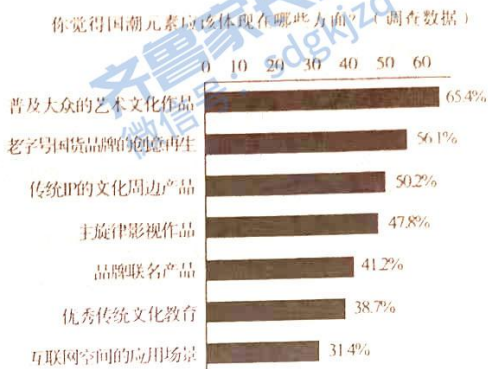 你觉得国潮元素应该体现在哪些方面?(调查数据)
0 10 20 30 40 50 60
普及大众的艺术文化作品 65.4%
老字号国货品牌的创意再生 56.1%
传统IP的文化周边产品 50.2%
主旋律影视作品 47.8%
品牌联名产品 41.2%
优秀传统文化教育 38.7%
互联网空间的应用场景 31.4%
齐鲁家长
微信号:sdgkjzq